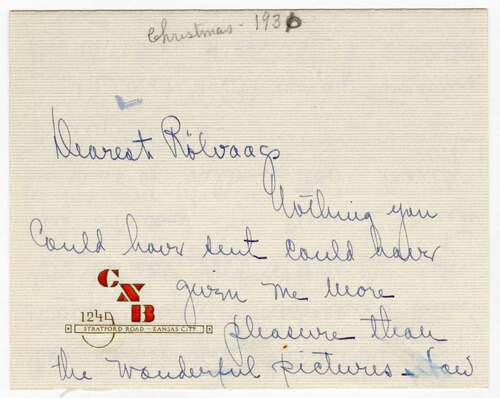 Christmas - 1930
Dearest Rölvaags
Nothing you
Could have sent could have
given me more
pleasure than
the wonderful pictures - How
CNB
1240
STRATFORD ROAD - KANSAS CITY